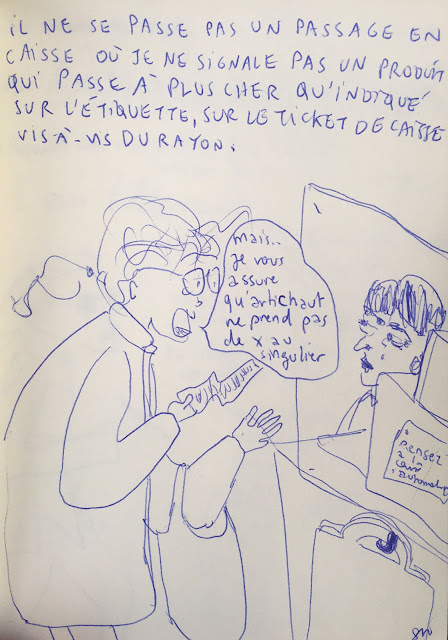 iL NE SE PASSE PAS UN PASSAGE EN
CAISSE OÙ JE NE SIGNALE PAS UN PRODUIT
QUI PASSE À PLUS CHER QU'INDIQUÉ
SUR L'ÉTIQUETTE, SUR LE TICKET DE CAISSE
VIS-À-VIS DU RAYON.
mais..
je vous
assure
qu'artichaut
ne prend pas
de x au
singulier
Pensez
à la
automatique